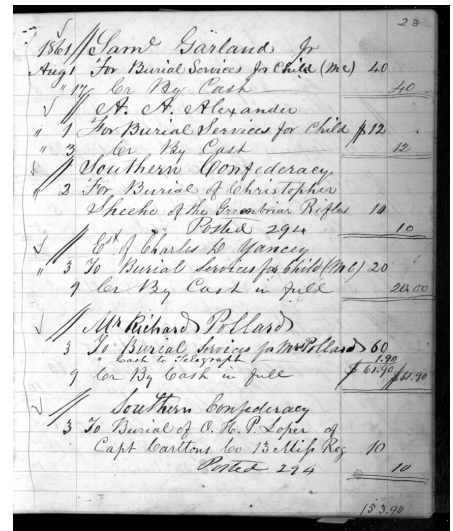 23
1861 // Saml Garland Jr
Aug 1 For Burial Services for Child (MC) 40
" 17 Cr By Cash 40
// A. A. Alexander
" 1 For Burial Services for Child $12
" 3 Cr By Cash 12
// Southern Confederacy
" 2 For Burial of Christopher
Sheehe of the Greenbriar Rifles 10
Posted 294 10
// Est of Charles D Yancey
" 3 To Burial Services for Child (MC) 20
9 Cr By Cash in full 20.00
// Mr Richard Pollard
3 To Burial Services for Mrs Pollard 60
" Cash to Telegraph 1.90
$61.90
9 Cr By Cash in full $61.90
// Southern Confederacy
3 To Burial of O. H. P. Loper of
Capt Carltons Co 13 Miss Reg 10
Posted 294 10
153.90